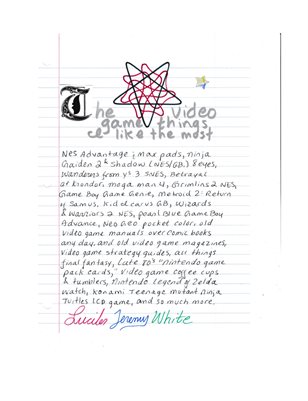 The video
game things
I like the most
Nes Advantage; max pads, ninja
Gaiden 2 & Shadow (NES/GB.) 8 eyes,
Wanderers from ys 3 SNES, Betrayal
at Krondor, mega man 4, Gremlins 2 NES,
Game Boy Game Genie, Metroid 2- Return
of Samus, Kid Icarus GB, Wizards
& Warriors 2 NES, pearl Blue Game Boy
Advance, Neo Geo pocket color, old
video game manuals over Comic books
any day, and old video game magazines,
Video game strategy guides, all things
final fantasy, Late 80s "Nintendo game
pack cards," video game coffee cups
& tumblers, Nintendo Legend of Zelda
watch, Konami Teenage mutant Ninja
Turtles LCD game, and so much more.
Jeremy White